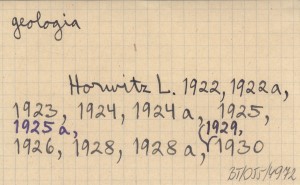 geologia
Horwitz L. 1922, 1922a,
1923, 1924, 1924a, 1925,
1925a,
1926, 1928, 1928a, 1929,
1930